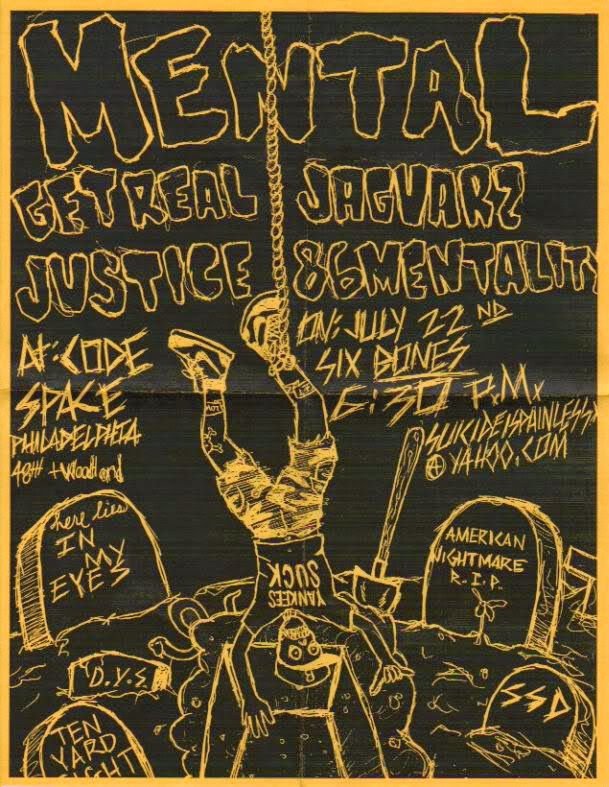 MENTAL
GET REAL
JAGUARZ
JUSTICE
86 MENTALITY
AT: CODE
SPACE
PHILADELPHIA
48TH + Woodland
ON: JULY 22ND
SIX BONES
6:30 P.M.
SUICIDEISPAINLESSX
@YAHOO.COM
here lies
IN
MY
EYES
AMERICAN
NIGHTMARE
R.I.P.
YANKEES
SUCK
D.Y.S.
SSD
TEN
YARD